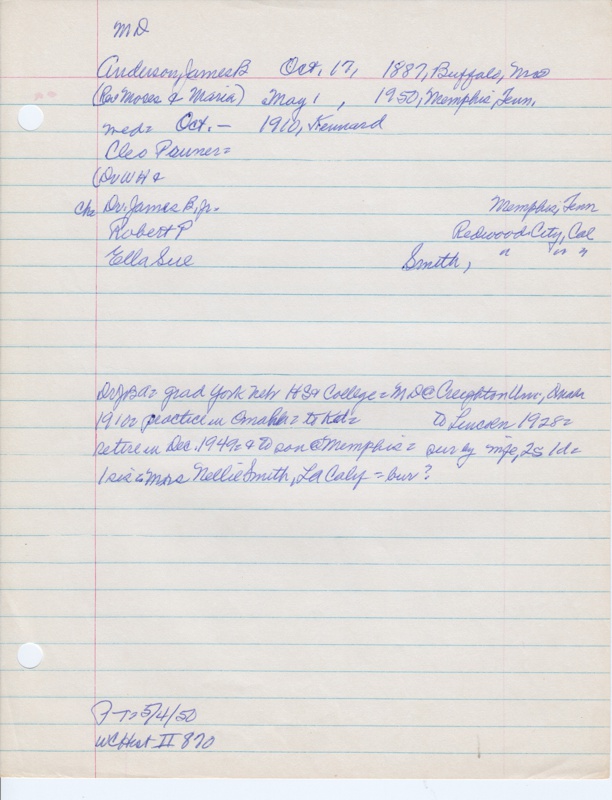 MD
Anderson, James B Oct. 17, 1887, Buffalo, Mo
(Rev Moses & Maria) May 1, 1950, Memphis, Tenn.
med= Oct. - 1910, Kennard
Cleo
(Dr W H &
Chr Dr. James B, Jr. Memphis, Tenn
Robert P Redwood City, Cal
Ella Sue Smith, " " "
Dr JBA= grad York Nebr HS & College = MD @ Creighton Uni,
1910= practice in Omaha= to Ked= to Lincoln 1928=
retire in Dec. 1949= & to son @ Memphis= sur by wife, 2s 1d=
1 sis= Mrs Nellie Smith, La = bur?
P-T= 5/4/50
WC Hist II 870